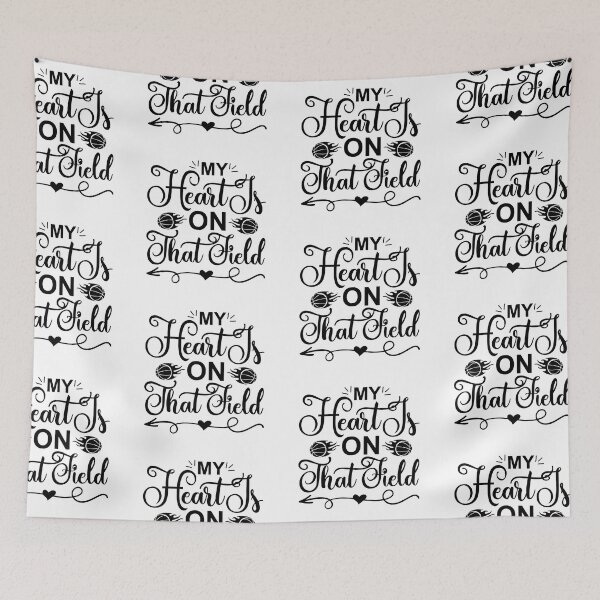 MY
Heart Is
ON
at Field
MY
Heart Is
ON
at Field
MY
eart Is
ON
at Field
ON
That Field
MY
Heart Is
ON
That Field
MY
Heart Is
ON
That Field
MY
Heart Is
ON
MY
Heart Is
ON
That Field
MY
Heart Is
ON
That Field
MY
Heart Is
ON
That Field
ON
That Field
MY
Heart Is
ON
That Field
MY
Heart Is
ON
That Field
MY
Heart Is
ON